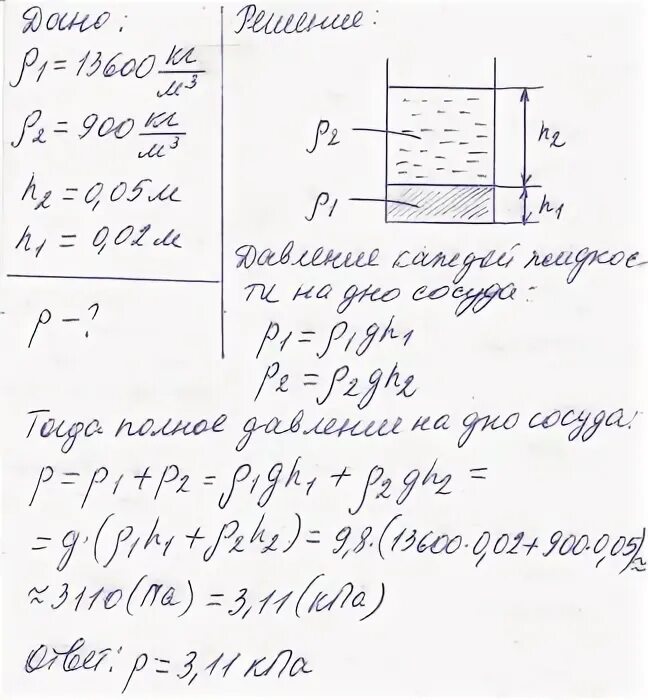 Дано:
ρ1 = 13600 кг/м³
ρ2 = 900 кг/м³
h2 = 0,05 м
h1 = 0,02 м
p – ?
Решение:
ρ2
h2
ρ1
h1
Давление каждой жидкос-
ти на дно сосуда:
p1 = ρ1gh1
p2 = ρ2gh2
Тогда полное давление на дно сосуда:
p = p1 + p2 = ρ1gh1 + ρ2gh2 =
= g·(ρ1h1 + ρ2h2) = 9,8·(13600·0,02 + 900·0,05) ≈
≈ 3110 (Па) = 3,11 (кПа)
Ответ: p = 3,11 кПа